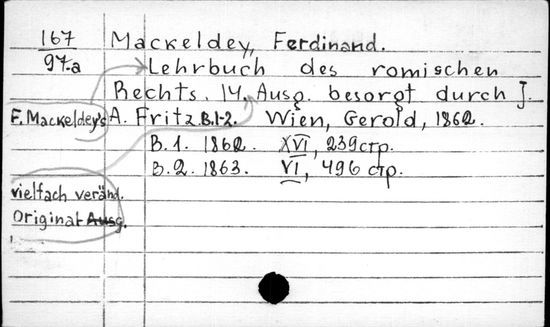 167
97-a
Mackeldey, Ferdinand.
Lehrbuch des romischen
Rechts. 14, Ausg. besorgt durch J.
F. Mackeldey's
A. Fritz. B.1-2. Wien, Gerold, 1862.
B.1. 1862. XVI, 239 стр.
B.2. 1863. VI, 496 стр.
vielfach veränd.
Original-Ausg.